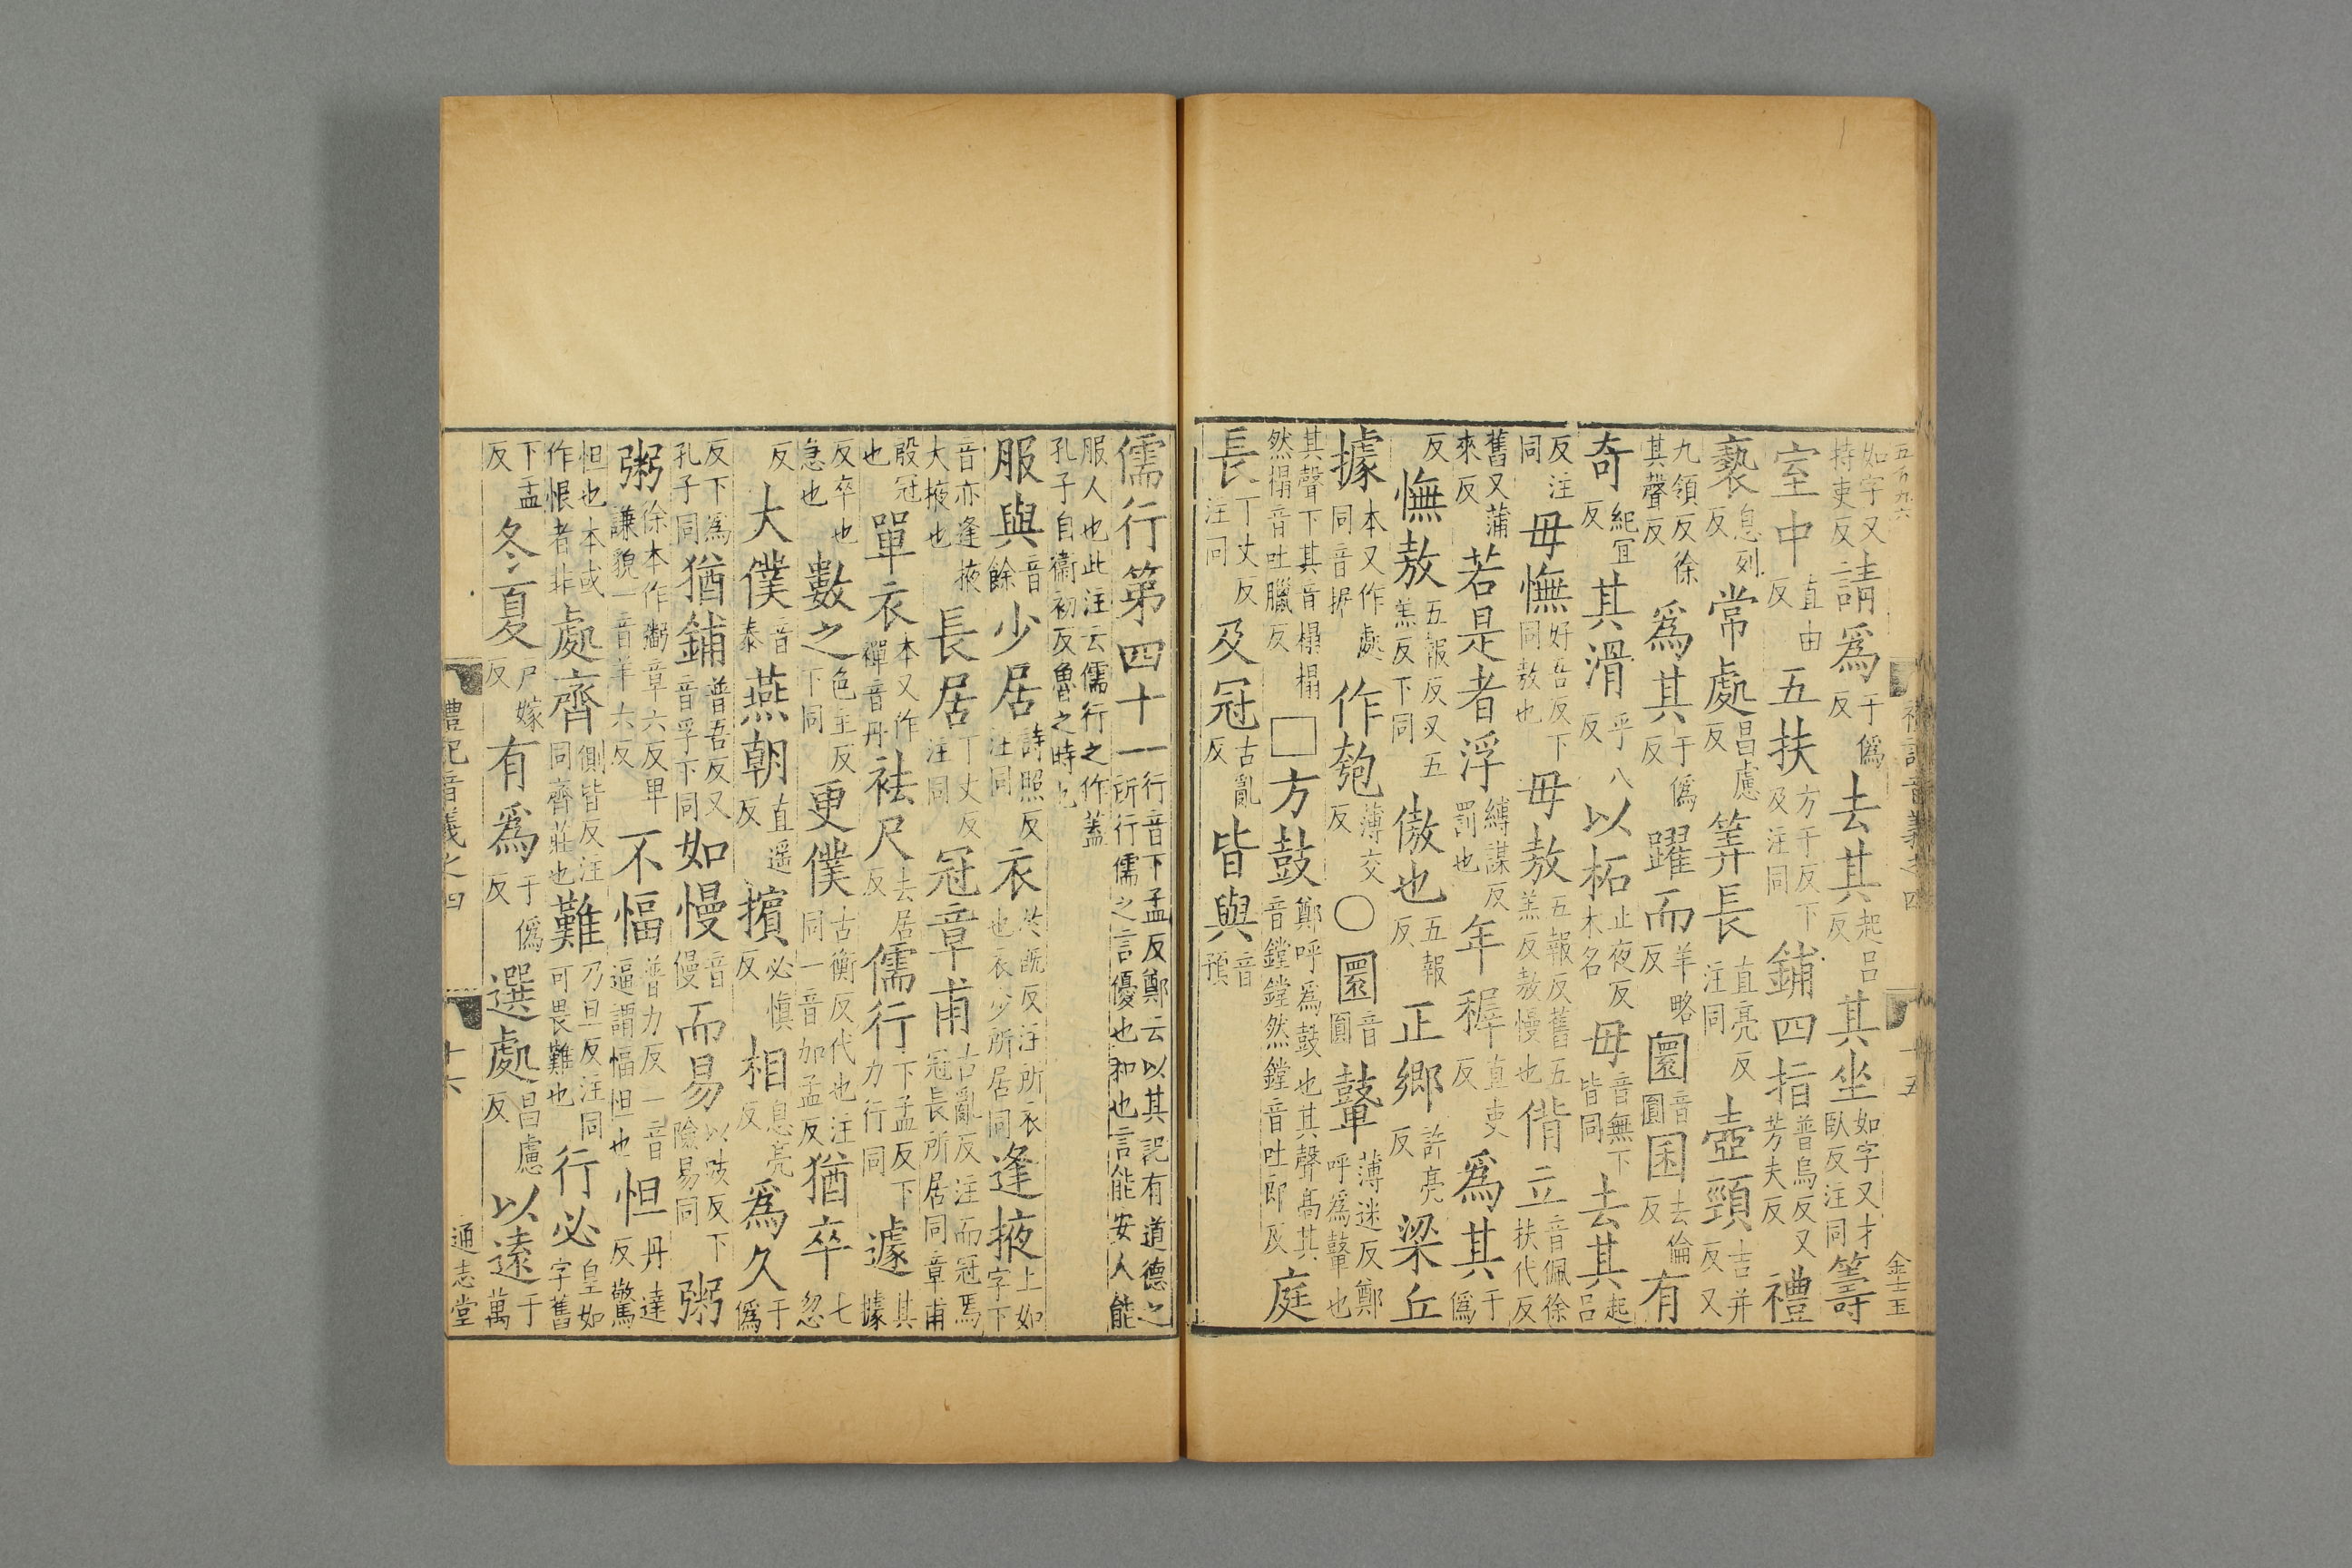 五百九六 禮記音義之四 十五 金士玉
如字又持吏反請爲于僞反去其起呂反其坐如字又才臥反注同籌
室中直由反五扶方于反下及注同鋪四指普烏反又芳夫反禮
褻息列反常處昌慮反筭長直亮反注同壺頸吉并反又
九領反徐其聲反爲其于僞反躍而羊略反圜音圓囷去倫反有
奇紀宜反其滑乎八反以柘止夜反木名毋音無下皆同去其起呂
反注同毋憮好吾反下同敖也毋敖五報反舊五羔反敖慢也偝立音佩徐扶代反
舊又蒲來反若是者浮縛謀反罰也年稺直吏反爲其于僞
反憮敖五報反又五羔反下同傲也五報反正鄉許亮反梁丘
據本又作處同音据作匏薄交反○圜音圓鼙薄迷反鄭呼爲鼙也
其聲下其音榻榻然榻音吐臘反□方鼓鄭呼爲鼓也其聲高其音鏜鏜然鏜音吐郎反庭
長丁丈反注同及冠古亂反皆與音預
儒行第四十一行音下孟反鄭云以其記有道德之所行儒之言優也和也言能安人能
服人也此注云儒行之作蓋孔子自衞初反魯之時也
服與音餘少居詩照反注同衣於既反注所衣也衣少所居同逢掖上如字下
音亦逢掖大掖也長居丁丈反注同冠章甫古亂反注而冠焉冠長所居同章甫
殷冠也單衣本又作襌音丹袪尺去居反儒行下孟反下力行同遽其據
反卒也急也數之色主反下同更僕古衡反代也注同一音加孟反猶卒七忽
反大僕音泰燕朝直遥反擯必慎反相息亮反爲久于僞
反下爲孔子同猶鋪普吾反又音孚下同如慢音僈而易以豉反下險易同粥
粥徐本作鬻章六反卑謙貌一音羊六反不愊普力反一音逼謂愊怛也怛丹達反驚
怛也本或作恨者非處齊側皆反注同齊莊也難乃旦反注同可畏難也行必皇如字舊
下孟反冬夏尸嫁反有爲于僞反選處昌慮反以遠于萬
禮記音義之四 十六 通志堂